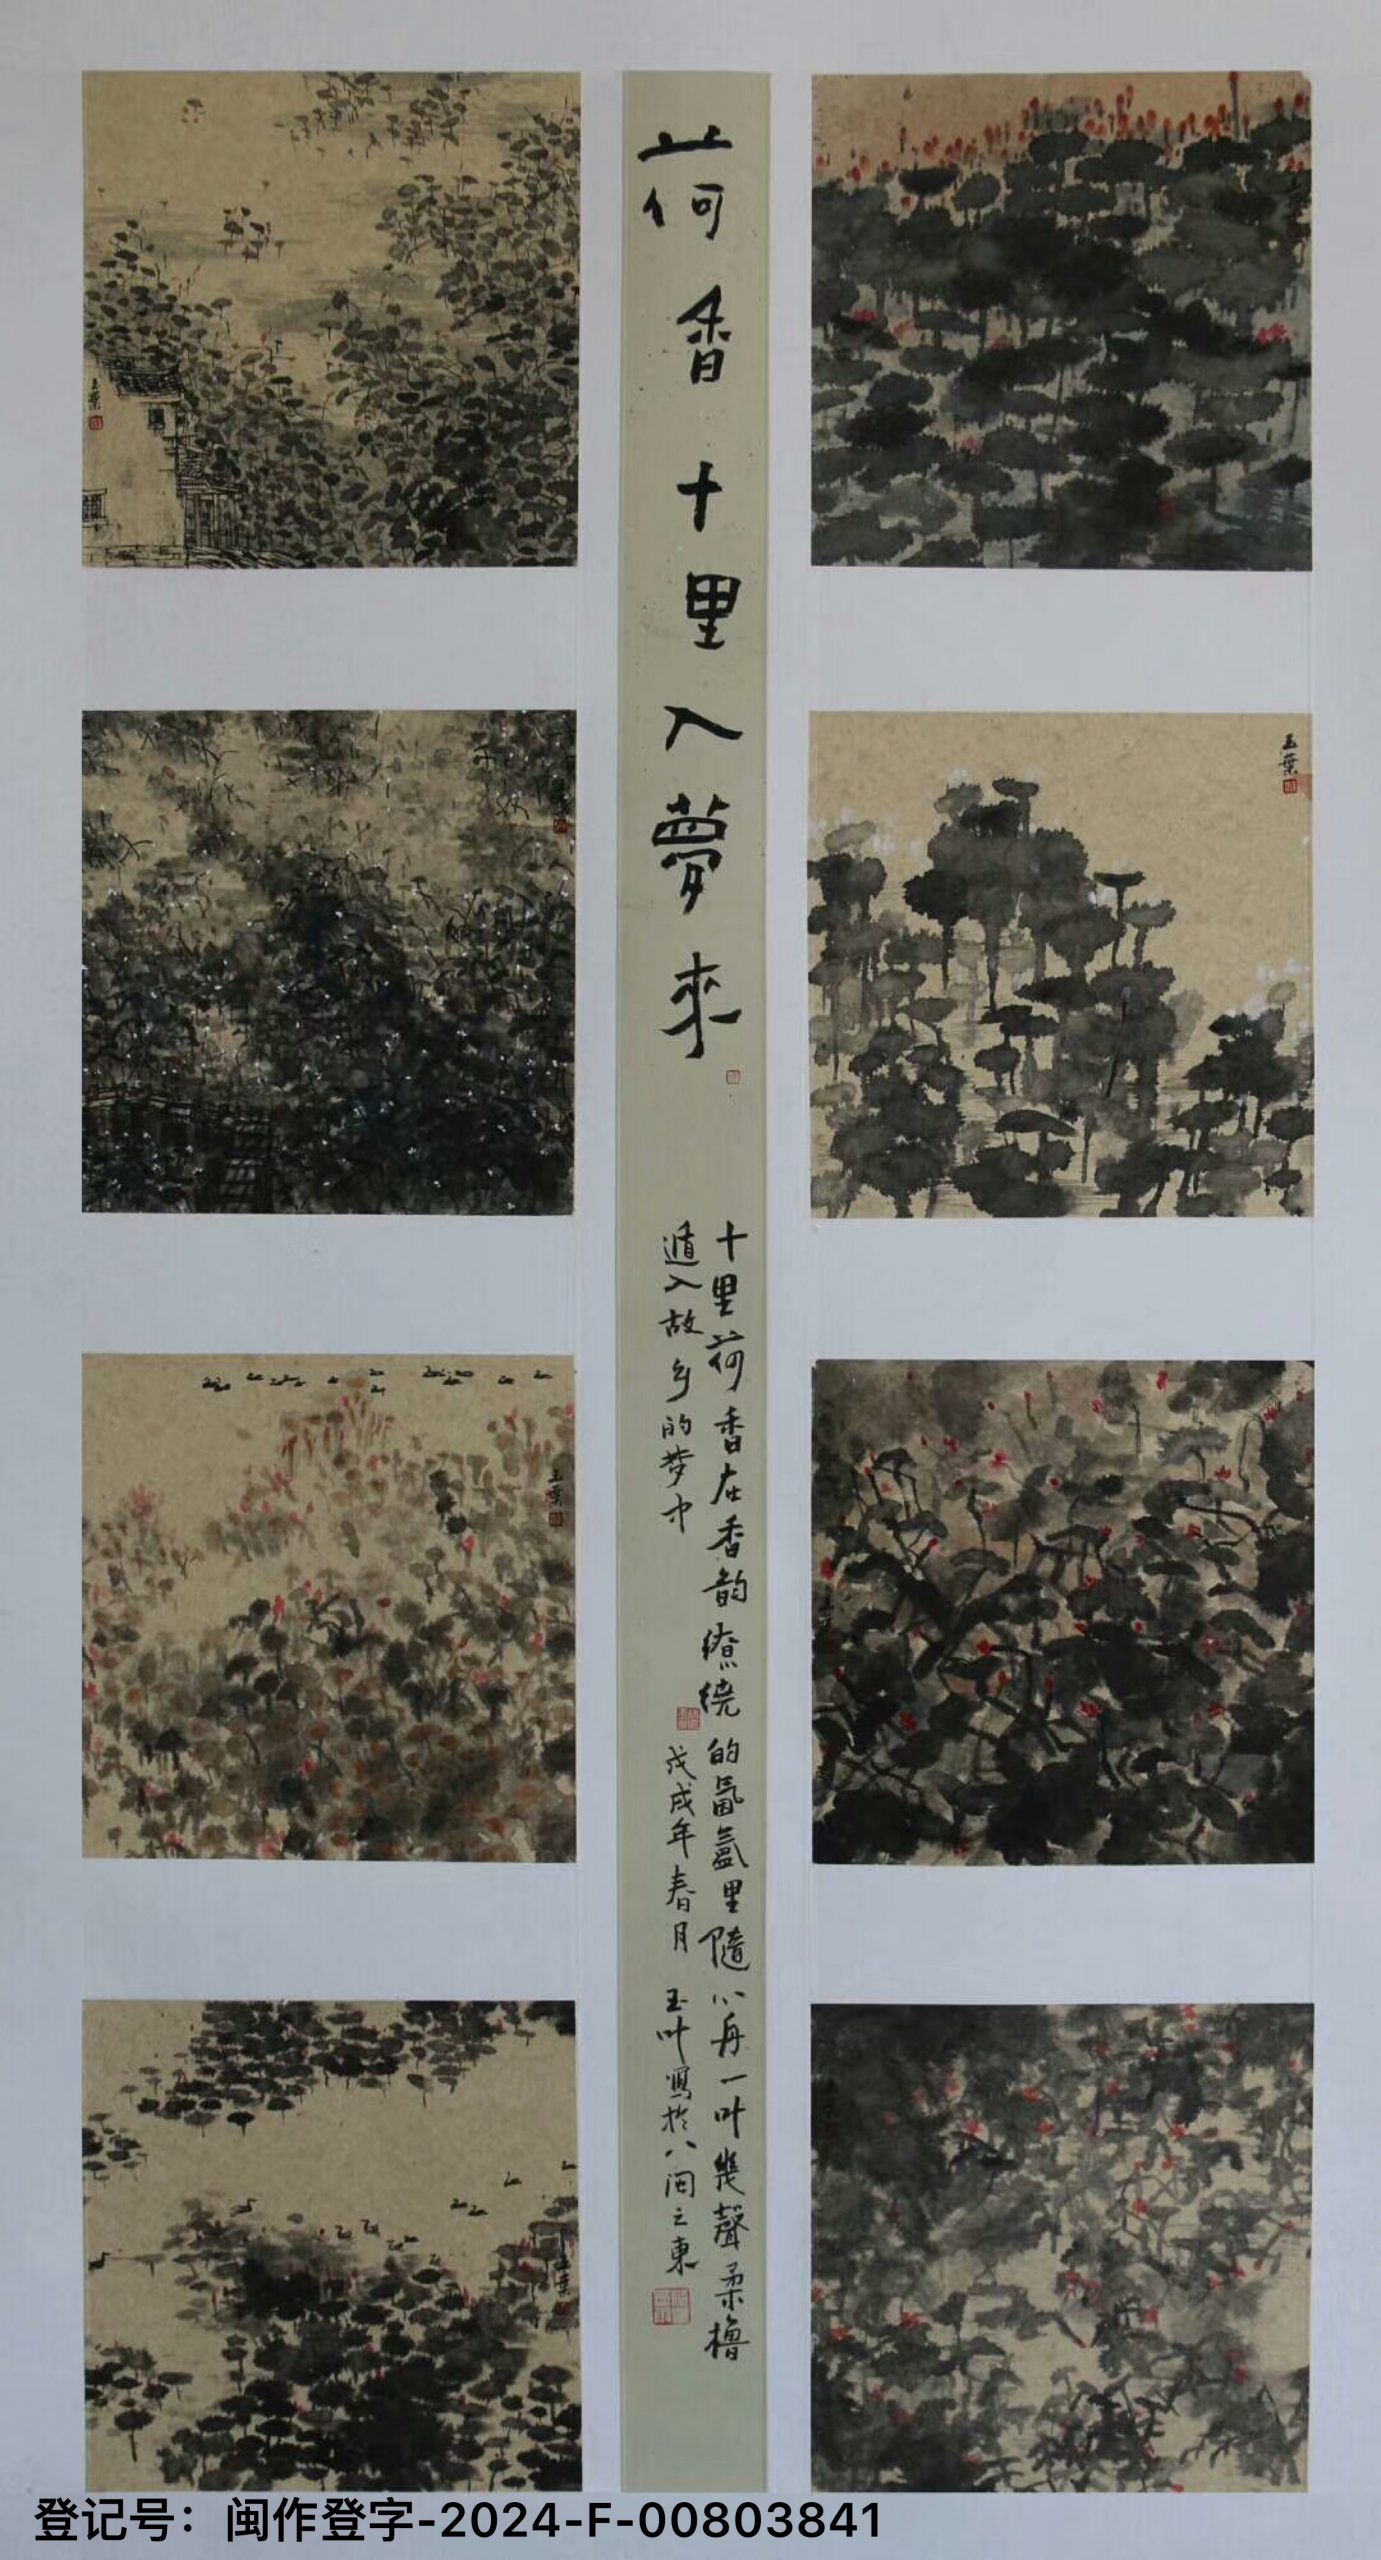 荷香十里入夢來
十里荷香在香韵缭绕的氤氲里隨小舟一叶幾聲柔櫓
遁入故乡的梦中
戊戌年春月 玉叶寫於八闽之東
玉葉
玉葉
玉葉
玉葉
登记号：闽作登字-2024-F-00803841